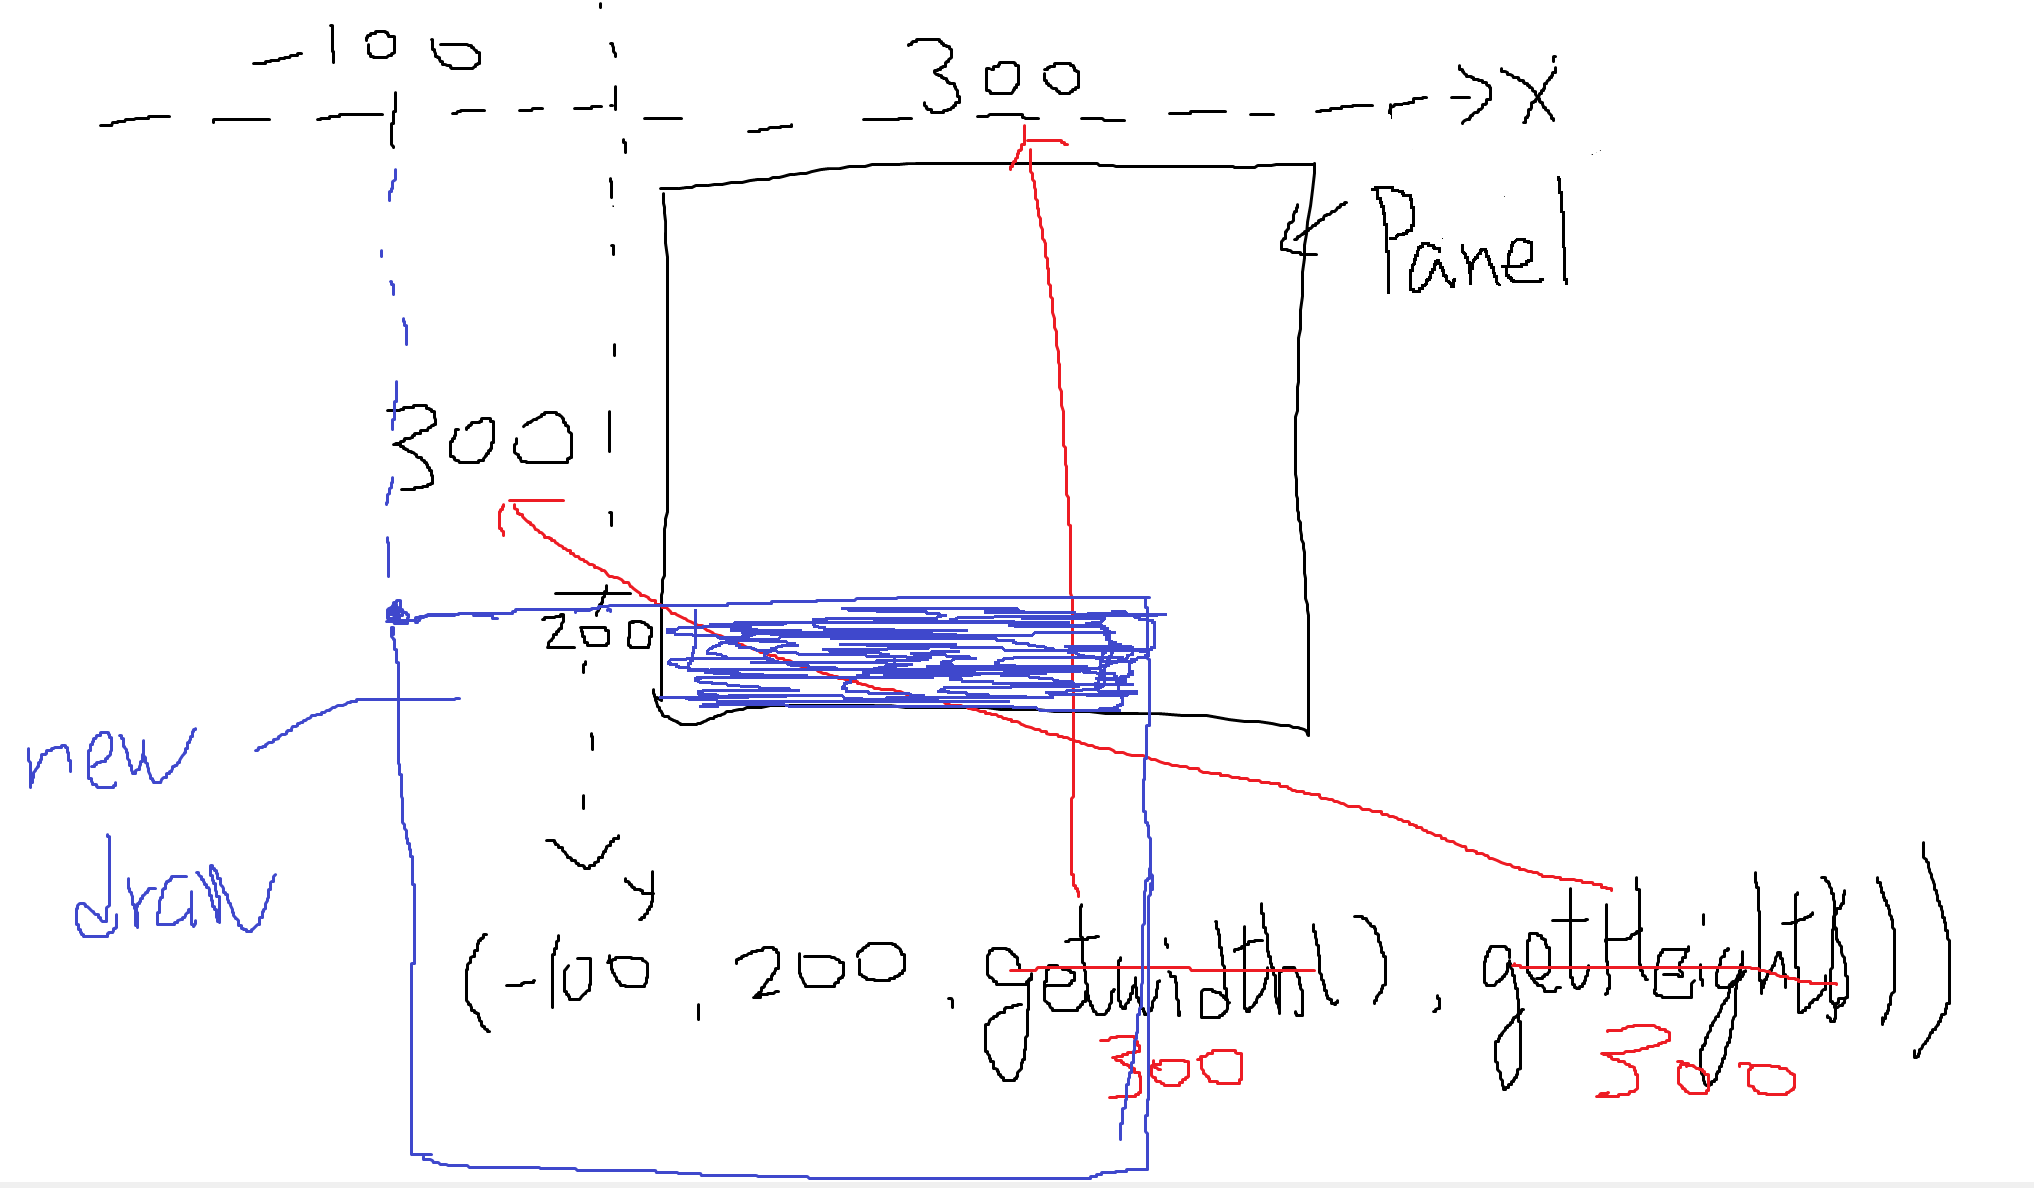 -100
300
X
Panel
300
200
new
draw
y
(-100, 200, getwidth(), getHeight())
300
300